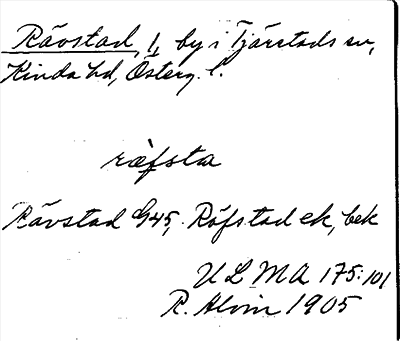 Rävstad, 1, by i Tjärstads sn,
Kinda hd, Österg. l.
ræ̀fsta
Rävstad G45, Räfstad ek, bek
ULMA 175:101
R. Alvin 1905